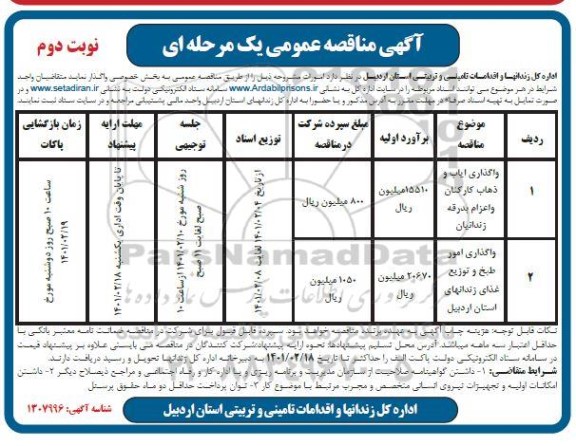 آگهی مناقصه عمومی یک مرحله ای
نوبت دوم
اداره کل زندانها و اقدامات تامینی و تربیتی استان اردبیل در نظر دارد امورات مشروحه ذیل را از طریق مناقصه عمومی به بخش خصوصی واگذار نماید متقاضیان واجد
شرایط در هر موضوع می توانند اسناد مربوطه را در سایت اداره کل به نشانی www.Ardabilprisons.ir سامانه ستاد الکترونیکی دولت به نشانی www.setadiran.ir و در
صورت تمایل به تهیه اسناد
ردیف
موضوع مناقصه
برآورد اولیه
مبلغ سپرده شرکت در مناقصه
توزیع اسناد
جلسه توجیهی
مهلت ارایه پیشنهاد
زمان بازگشایی پاکات
۱
واگذاری ایاب و
ذهاب کارکنان
واعزام بدرقه
زندانیان
۱۵۵۱۰میلیون
ریال
۸۰۰ میلیون ریال
۲
واگذاری امور
طبخ و توزیع
غذای زندانهای
استان اردبیل
۲۰۶۷۰ میلیون
ریال
۱۰۵۰ میلیون
ریال
از تاریخ ۱۴۰۱/۰۲/۰۴ لغایت ۱۴۰۱/۰۲/۰۸
روز شنبه مورخ ۱۴۰۱/۰۲/۱۰ از ساعت ۱۰
صبح لغایت ۱۱ صبح
تا پایان وقت اداری یکشنبه ۱۴۰۱/۰۲/۱۸
ساعت ۱۰ صبح روز دوشنبه مورخ
۱۴۰۱/۰۲/۱۹
ParsNamadData
نکات قابل توجه: هزینه چاپ آگهی به عهده برنده مناقصه خواهد بود. سپرده قابل قبول برای شرکت در مناقصه ضمانت نامه معتبر بانکی با
حداقل اعتبار سه ماهه میباشد. آدرس محل تسلیم پیشنهادها: نحوه ارایه پیشنهاد: شرکت کنندگان در مناقصه می بایستی علاوه بر پیشنهاد قیمت
در سامانه ستاد الکترونیکی دولت پاکت الف را حداکثر تا تاریخ ۱۴۰۱/۰۲/۱۸ به دبیرخانه اداره کل زندانها تحویل و رسید دریافت دارند.
شرایط متقاضی: ۱- داشتن گواهینامه صلاحیت از سازمان مدیریت و برنامه ریزی و یا اداره کار و رفاه اجتماعی و مراجع ذیصلاح دیگر ۲- داشتن
امکانات اولیه و تجهیزات نیروی انسانی متخصص و مجرب مرتبط با موضوع کار ۳- توان پرداخت حداقل دو ماه حقوق پرسنل
اداره کل زندانها و اقدامات تامینی و تربیتی استان اردبیل
شناسه آگهی: ۱۳۰۷۹۹۶